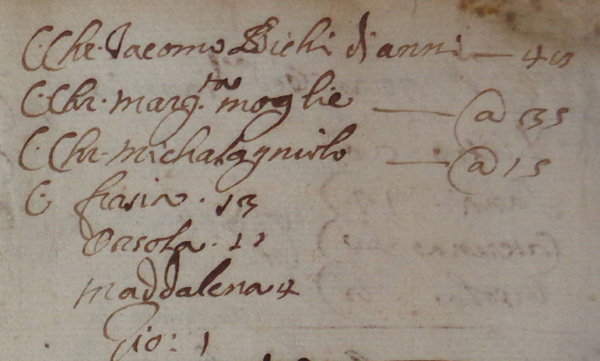 C. Chr. Iacomo Bichi di anni — 40
C. Chr. Marg.ta moglie — @ 35
C. Chr. Michalagniolo — @ 15
C frasia. 13
Orsola. 11
Maddalena 4
Gio: 1